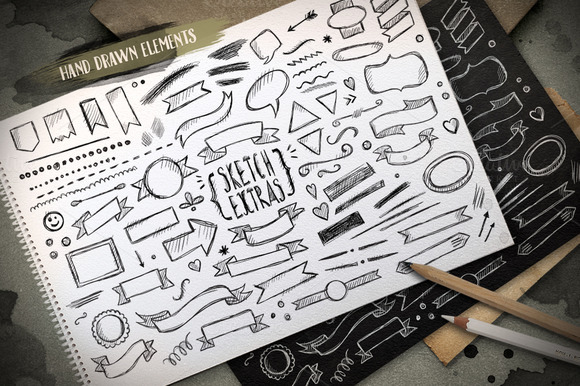 HAND DRAWN ELEMENTS
SKETCH
EXTRAS